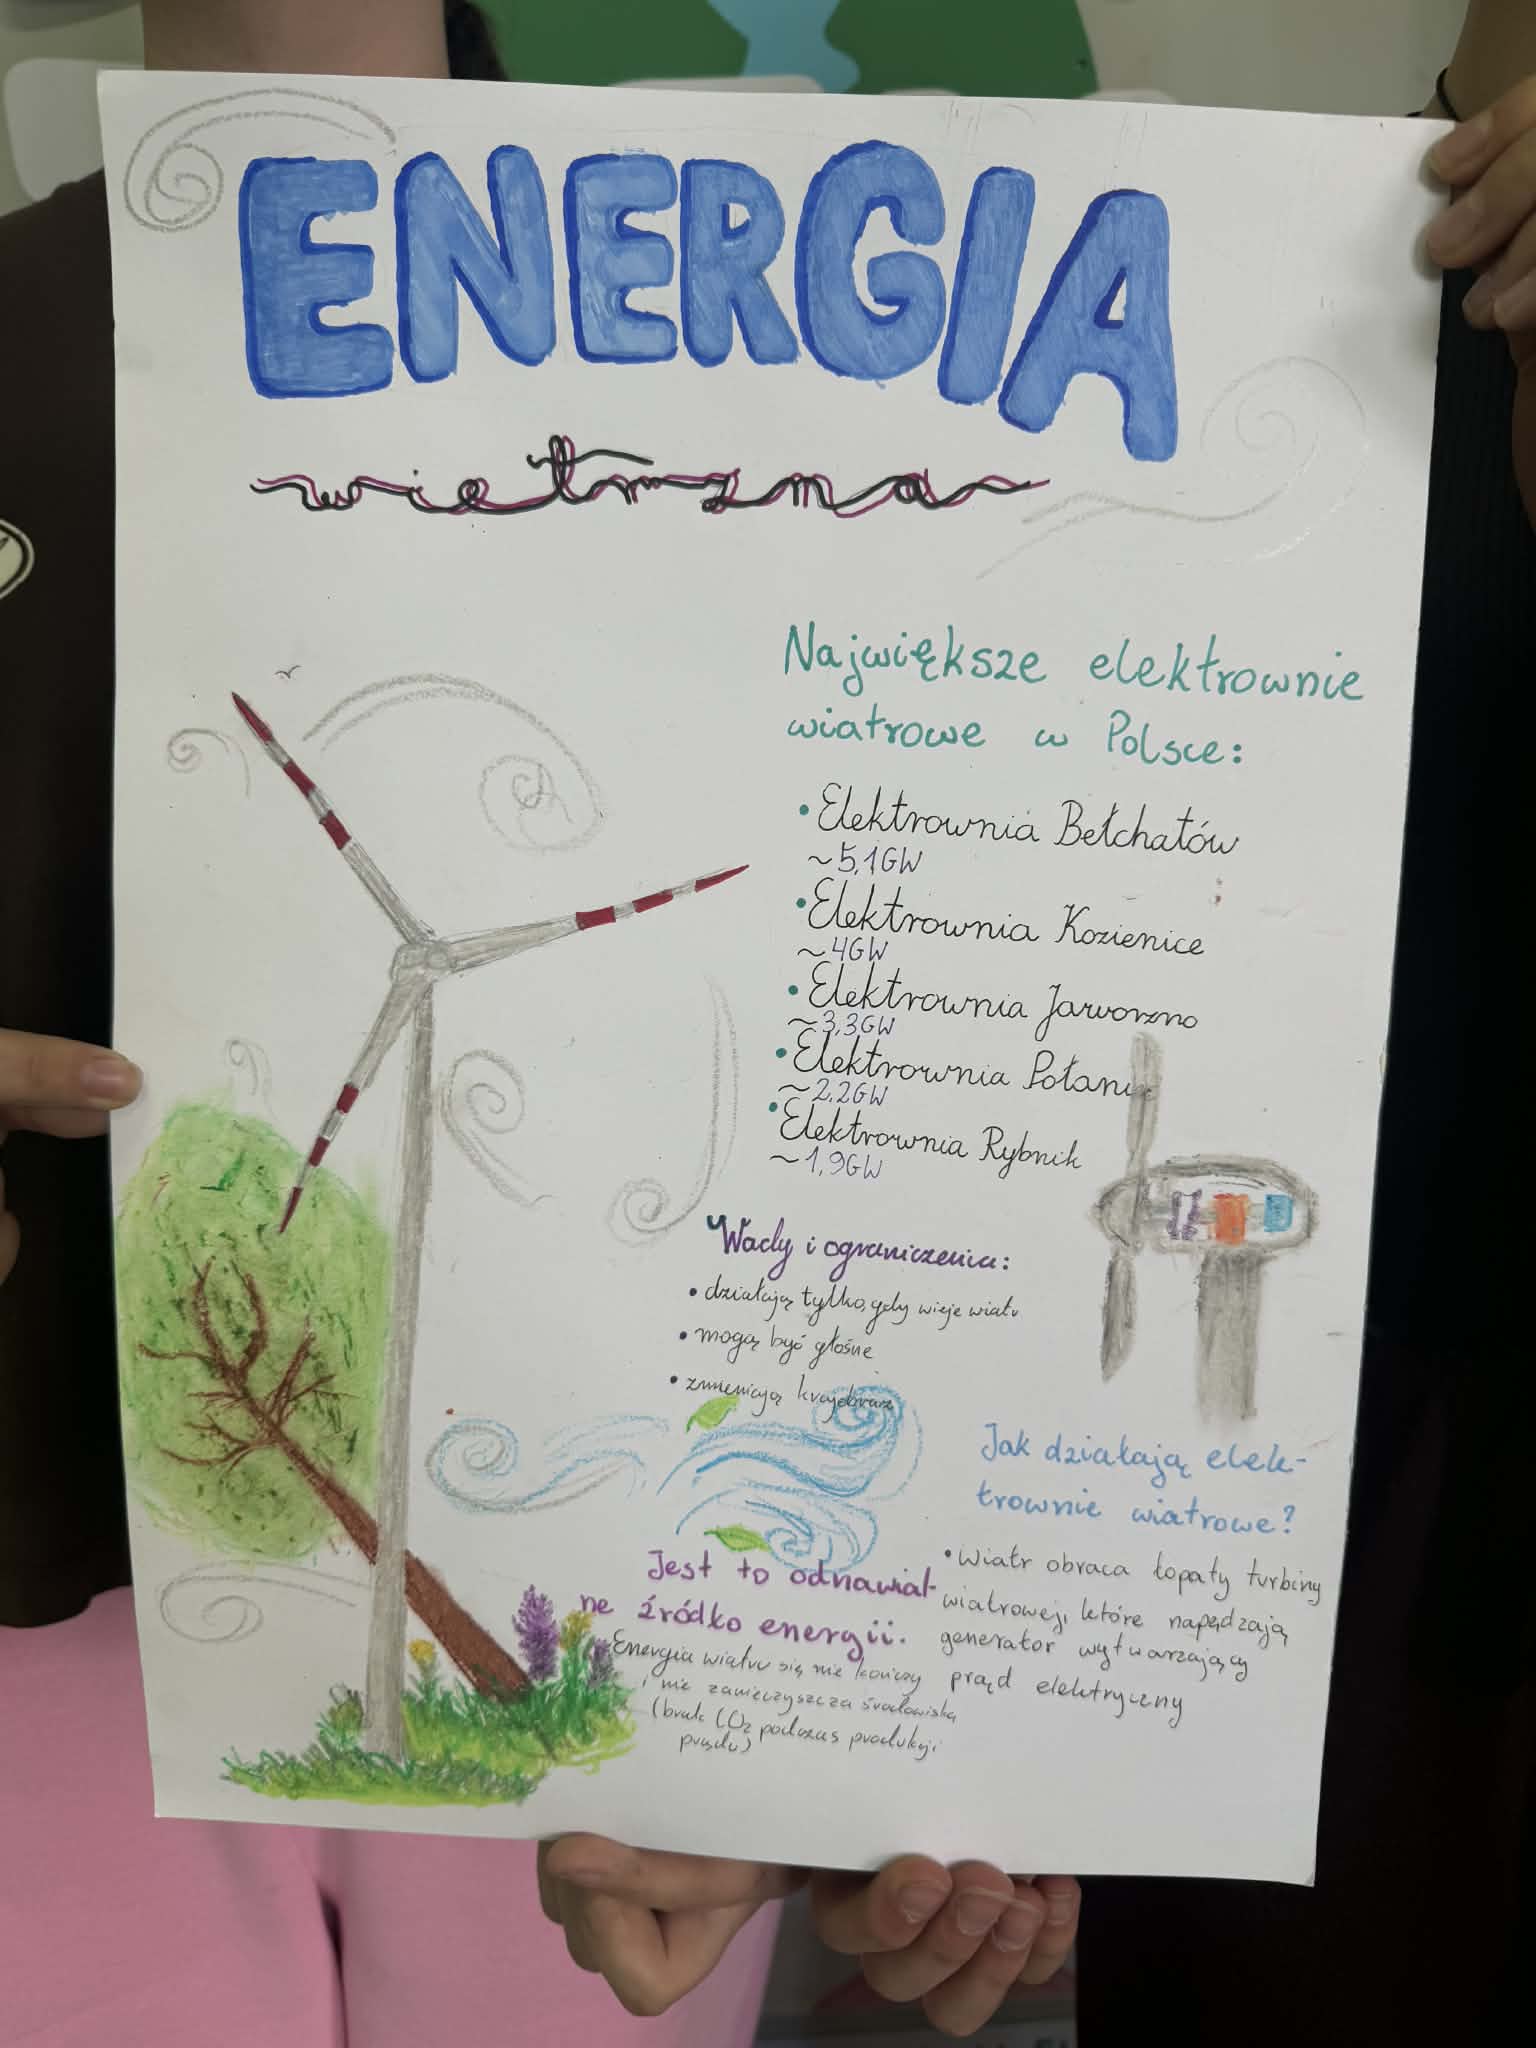 ENERGIA
wietrzna
Największe elektrownie
wiatrowe w Polsce:
• Elektrownia Bełchatów
~5,1GW
• Elektrownia Kozienice
~4GW
• Elektrownia Jaworzno
~3,3GW
• Elektrownia Połani
~2,2GW
• Elektrownia Rybnik
~1,9GW
Wady i ograniczenia:
• działają tylko, gdy wieje wiatr
• mogą być głośne
• zmieniają krajobraz
Jak działają elek-
trownie wiatrowe?
• Wiatr obraca łopaty turbiny
wiatrowej, które napędzają
generator wytwarzający
prąd elektryczny
Jest to odnawial-
ne źródło energii.
Energia wiatru się nie kończy
i nie zanieczyszcza środowiska
(brak CO₂ podczas produkcji
prądu)